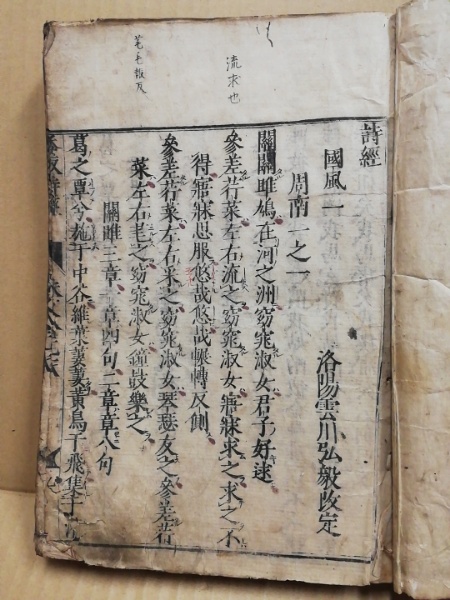 詩經
國風一
周南一之一
洛陽雲川弘毅改定
關關雎鳩在河之洲窈窕淑女君子好逑
參差荇菜左右流之窈窕淑女寤寐求之求之不
得寤寐思服悠哉悠哉輾轉反側
參差荇菜左右采之窈窕淑女琴瑟友之參差荇
菜左右芼之窈窕淑女鐘鼓樂之
關雎三章一章四句二章章八句
葛之覃兮施于中谷維葉萋萋黃鳥于飛集于
流求也
芼毛報反